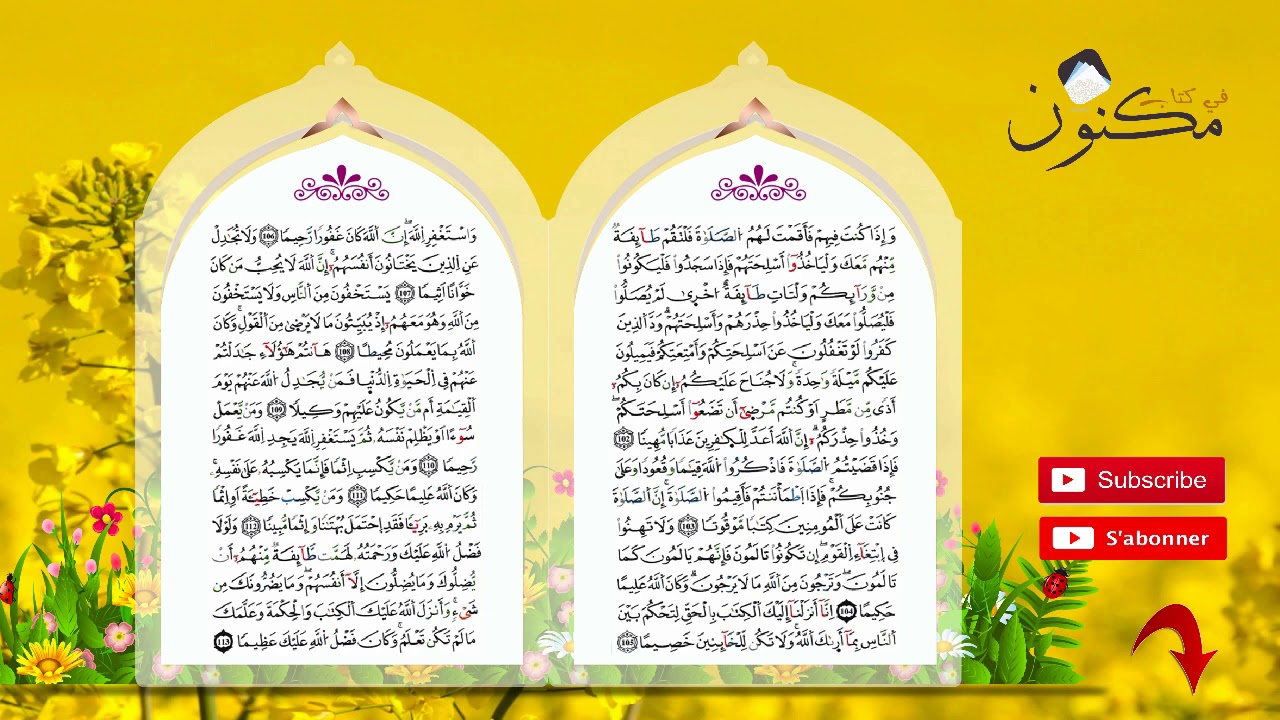 في كتاب
مكنون
وَإِذَا كُنتَ فِيهِمْ فَأَقَمْتَ لَهُمُ الصَّلَوٰةَ فَلْتَقُمْ طَآئِفَةٌ
مِّنْهُم مَّعَكَ وَلْيَاخُذُوٓاْ أَسْلِحَتَهُمْ فَإِذَا سَجَدُواْ فَلْيَكُونُواْ
مِنْ وَّرَآئِكُمْ وَلْتَاتِ طَآئِفَةٌ اخْر۪ىٰ لَمْ يُصَلُّواْ
فَلْيُصَلُّواْ مَعَكَ وَلْيَاخُذُواْ حِذْرَهُمْ وَأَسْلِحَتَهُمْ وَدَّ اَلذِينَ
كَفَرُواْ لَوْ تَغْفُلُونَ عَنَ اَسْلِحَتِكُمْ وَأَمْتِعَتِكُمْ فَيَمِيلُونَ
عَلَيْكُم مَّيْلَةً وَٰحِدَةً وَلَا جُنَاحَ عَلَيْكُمُۥٓ إِن كَانَ بِكُمُۥٓ
أَذىً مِّن مَّطَرٍ اَوْ كُنتُم مَّرْض۪ىٰٓ أَن تَضَعُوٓاْ أَسْلِحَتَكُمْ
وَخُذُواْ حِذْرَكُمُۥٓ إِنَّ اَللَّهَ أَعَدَّ لِلْكٰ۪فِرِينَ عَذَاباً مُّهِيناً 102
فَإِذَا قَضَيْتُمُ الصَّلَوٰةَ فَاذْكُرُواْ اُللَّهَ قِيَٰماً وَقُعُوداً وَعَلَىٰ
جُنُوبِكُمْ فَإِذَا اَطْمَأْنَنتُمْ فَأَقِيمُواْ اُلصَّلَوٰةَ إِنَّ اَلصَّلَوٰةَ
كَانَتْ عَلَى اَلْمُومِنِينَ كِتَٰباً مَّوْقُوتاً 103 وَلَا تَهِنُواْ
فِى اِبْتِغَآءِ اِلْقَوْمِ إِن تَكُونُواْ تَالَمُونَ فَإِنَّهُمْ يَالَمُونَ كَمَا
تَالَمُونَ وَتَرْجُونَ مِنَ اَللَّهِ مَا لَا يَرْجُونَ وَكَانَ اَللَّهُ عَلِيماً
حَكِيماً 104 اِنَّآ أَنزَلْنَآ إِلَيْكَ اَلْكِتَٰبَ بِالْحَقِّ لِتَحْكُمَ بَيْنَ
اَلنَّاسِ بِمَآ أَر۪ىٰكَ اَللَّهُ وَلَا تَكُن لِّلْخَآئِنِينَ خَصِيماً 105
وَاسْتَغْفِرِ اِللَّهَ إِنَّ اَللَّهَ كَانَ غَفُوراً رَّحِيماً 106 وَلَا تُجَٰدِلْ
عَنِ اِلذِينَ يَخْتَانُونَ أَنفُسَهُمُۥٓ إِنَّ اَللَّهَ لَا يُحِبُّ مَن كَانَ
خَوَّاناً اَثِيماً 107 يَسْتَخْفُونَ مِنَ اَلنَّاسِ وَلَا يَسْتَخْفُونَ
مِنَ اَللَّهِ وَهُوَ مَعَهُمُۥٓ إِذْ يُبَيِّتُونَ مَا لَا يَرْضَىٰ مِنَ اَلْقَوْلِ وَكَانَ
اَللَّهُ بِمَا يَعْمَلُونَ مُحِيطاً 108 هَٰٓأَنتُمْ هَٰٓؤُلَآءِ جَٰدَلْتُمْ
عَنْهُمْ فِى اِلْحَيَوٰةِ اِلدُّنْيَا فَمَنْ يُّجَٰدِلُ اُللَّهَ عَنْهُمْ يَوْمَ
اَلْقِيَٰمَةِ أَم مَّنْ يَّكُونُ عَلَيْهِمْ وَكِيلاً 109 وَمَنْ يَّعْمَلْ
سُوٓءاً اَوْ يَظْلِمْ نَفْسَهُۥ ثُمَّ يَسْتَغْفِرِ اِللَّهَ يَجِدِ اِللَّهَ غَفُوراً
رَّحِيماً 110 وَمَنْ يَّكْسِبِ اِثْماً فَإِنَّمَا يَكْسِبُهُۥ عَلَىٰ نَفْسِهِۦ
وَكَانَ اَللَّهُ عَلِيماً حَكِيماً 111 وَمَنْ يَّكْسِبْ خَطِيٓـَٔةً اَوِ اِثْماً
ثُمَّ يَرْمِ بِهِۦ بَرِيٓـٔاً فَقَدِ اِحْتَمَلَ بُهْتَٰناً وَإِثْماً مُّبِيناً 112 وَلَوْلَا
فَضْلُ اُللَّهِ عَلَيْكَ وَرَحْمَتُهُۥ لَهَمَّت طَّآئِفَةٌ مِّنْهُمُۥٓ أَنْ
يُّضِلُّوكَ وَمَا يُضِلُّونَ إِلَّآ أَنفُسَهُمْ وَمَا يَضُرُّونَكَ مِن
شَىْءٍ وَأَنزَلَ اَللَّهُ عَلَيْكَ اَلْكِتَٰبَ وَالْحِكْمَةَ وَعَلَّمَكَ
مَا لَمْ تَكُن تَعْلَمُ وَكَانَ فَضْلُ اُللَّهِ عَلَيْكَ عَظِيماً 113
Subscribe
S'abonner